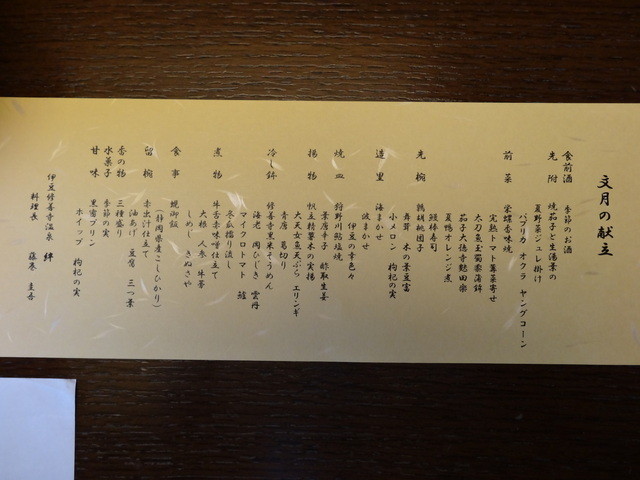 文月の献立
食前酒 季節のお酒
先附 焼茄子と生湯葉の
夏野菜ジュレ掛け
パプリカ オクラ ヤングコーン
前菜 栄螺香味焼
完熟トマト蓴菜寄せ
太刀魚玉蜀黍蒲鉾
茄子大徳寺麩田楽
夏鴨オレンジ煮
鰻棒寿司
胡桃団子
先椀 鶉 舞茸 木の葉豆富
小メロン 枸杞の実
造里 海まかせ
波まかせ
伊豆の幸色々
焼皿 狩野川鮎塩焼
葉唐辛子 酢取生姜
揚物 帆立鶏箒木の実揚
大天女魚天ぷら エリンギ
青唐 葛切り
冷し鉢 修善寺黒米そうめん
海老 岡ひじき 雲丹
マイクロトマト 鱧
冬瓜擂り流し
煮物 牛舌赤味噌仕立て
大根 人参 牛蒡
しめじ きぬさや
食事 蜆御飯
(静岡県産こしひかり)
留椀 赤出汁仕立て
油あげ 豆腐 三つ葉
香の物 三種盛り
水菓子 季節の実
甘味 黒蜜プリン
ホイップ 枸杞の実
伊豆修善寺温泉 絆
料理長 藤巻 圭吾